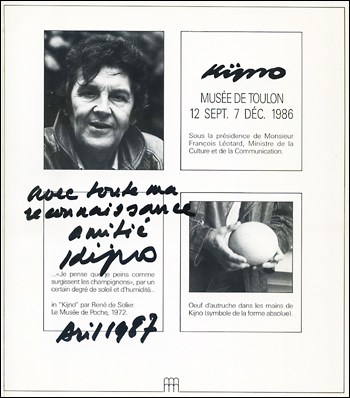 Kijno
MUSÉE DE TOULON
12 SEPT. 7 DÉC. 1986
Sous la présidence de Monsieur
François Léotard, Ministre de la
Culture et de la Communication.
avec toute ma
reconnaissance
amitié
Kijno
...«Je pense que je peins comme
surgissent les champignons», par un
certain degré de soleil et d'humidité...
in "Kijno" par René de Solier.
Le Musée de Poche, 1972.
Avril 1987
Oeuf d'autruche dans les mains de
Kijno (symbole de la forme absolue).